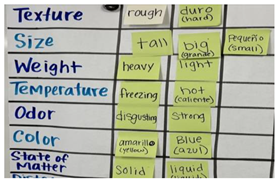 Texture rough duro
(hard)
Size tall big
(grande) Pequeño
(small)
Weight heavy light
Temperature freezing hot
(caliente)
Odor disgusting strong
Color amarillo
(yellow) Blue
(azul)
State of
Matter solid liquid